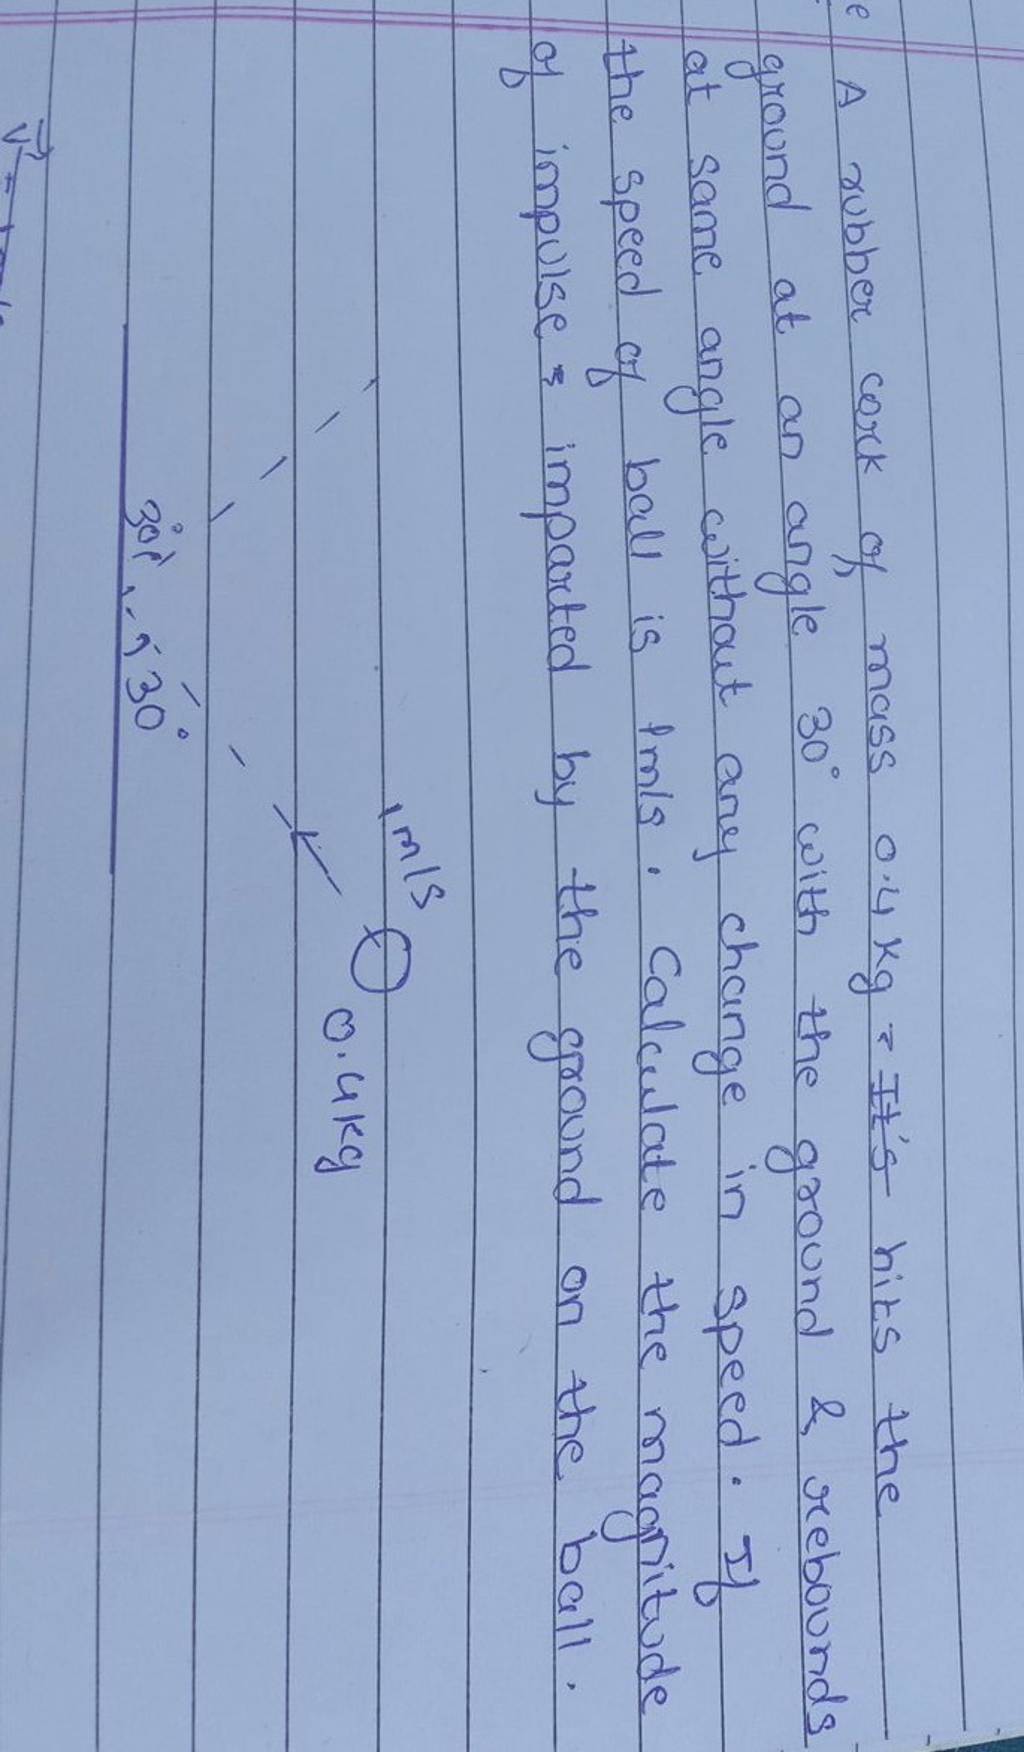 e
A rubber cork of mass 0.4 kg It's hits the
ground at an angle 30° with the ground & rebounds
at same angle without any change in speed. If
the speed of ball is 1m/s. Calculate the magnitude
of impulse imparted by the ground on the ball.
1m/s
0.4kg
30° 30°
V =